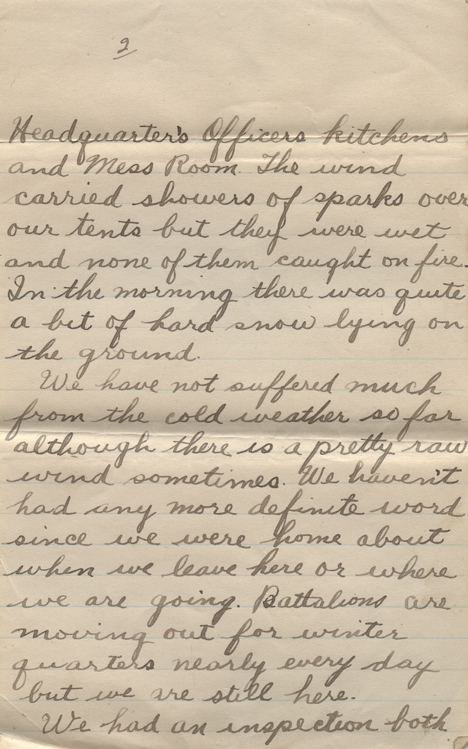 2
Headquarter's Officers kitchens
and Mess Room. The wind
carried showers of sparks over
our tents but they were wet
and none of them caught on fire.
In the morning there was quite
a bit of hard snow lying on
the ground.
We have not suffered much
from the cold weather so far
although there is a pretty raw
wind sometimes. We haven't
had any more definite word
since we were home about
when we leave here or where
we are going. Battalions are
moving out for winter
quarters nearly every day
but we are still here.
We had an inspection both